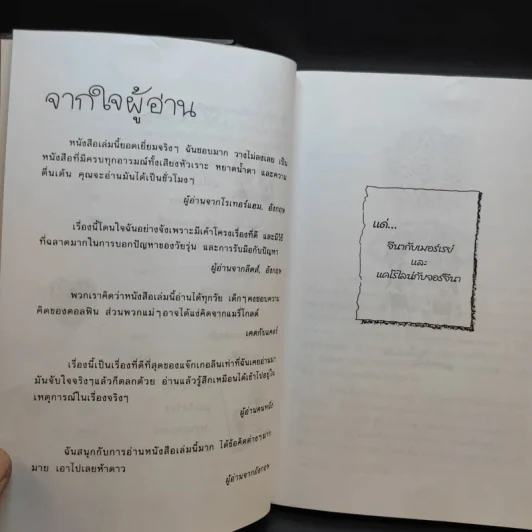 จากใจผู้อ่าน
หนังสือเล่มนี้ยอดเยี่ยมจริงๆ ฉันชอบมาก วางไม่ลงเลย เป็น
หนังสือที่มีครบทุกอารมณ์ทั้งเสียงหัวเราะ หยาดน้ำตา และความ
ตื่นเต้น คุณจะอ่านมันได้เป็นชั่วโมงๆ
ผู้อ่านจากโรเทอร์แฮม, อังกฤษ
เรื่องนี้โดนใจฉันอย่างจังเพราะมีเค้าโครงเรื่องที่ดี และมีวิธี
ที่ฉลาดมากในการบอกปัญหาของวัยรุ่น และการรับมือกับปัญหา
ผู้อ่านจากลีดส์, อังกฤษ
พวกเราคิดว่าหนังสือเล่มนี้อ่านได้ทุกวัย เด็กๆคงชอบความ
คิดของดอลฟิน ส่วนพวกแม่ๆอาจได้แง่คิดจากแมรี่โกลด์
เคตกับแคลร์
เรื่องนี้เป็นเรื่องที่ดีที่สุดของแจ๊กเกอลีนเท่าที่ฉันเคยอ่านมา
มันจับใจจริงๆแล้วก็ตลกด้วย อ่านแล้วรู้สึกเหมือนได้เข้าไปอยู่ใน
เหตุการณ์ในเรื่องจริงๆ
ผู้อ่านคนหนึ่ง
ฉันสนุกกับการอ่านหนังสือเล่มนี้มาก ได้ข้อคิดต่างๆมาก
มาย เอาไปเลยห้าดาว
ผู้อ่านจากอังกฤษ
แด่...
จีนากับเมอร์เรย์
และ
แคโรไลน์กับจอร์จินา